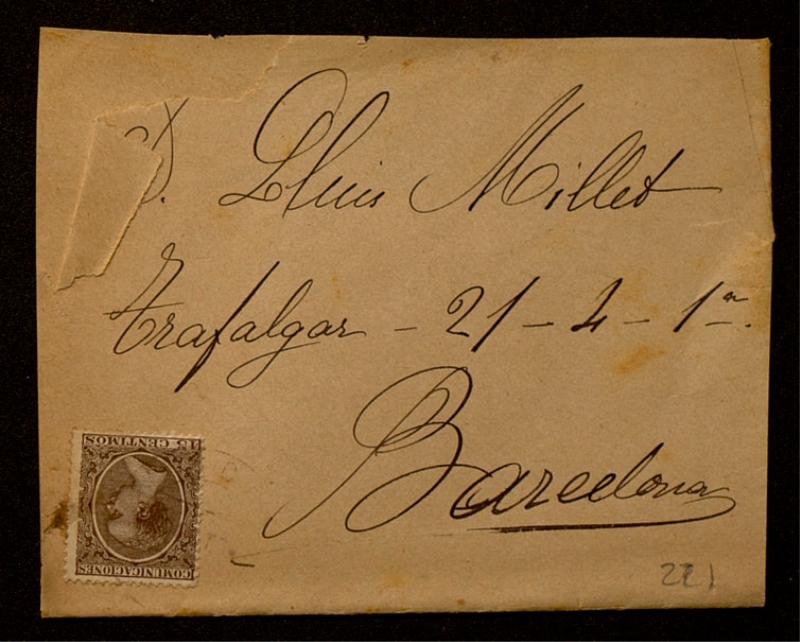 D. Lluis Millet
Trafalgar - 21 - 4 - 1er.
Barcelona
15 CENTIMOS
COMUNICACIONES
221